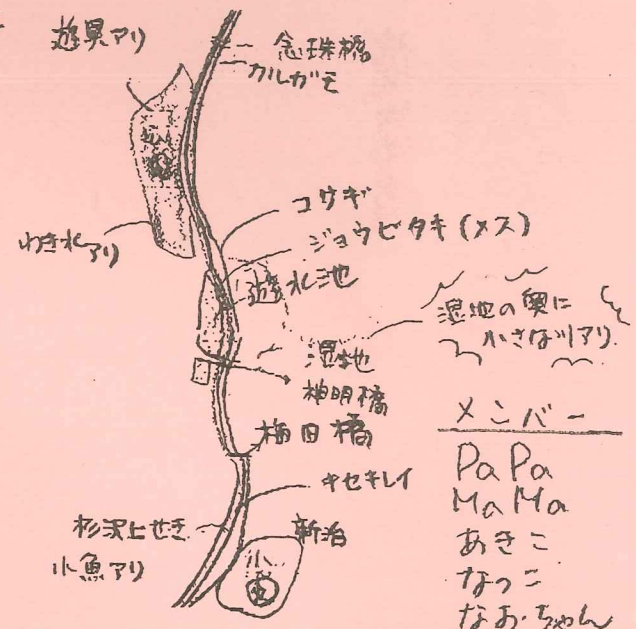 遊具アリ
念珠橋
カルガモ
わき水アリ
コサギ
ジョウビタキ(メス)
遊水池
湿地の奥に
小さな川アリ
湿地
神明橋
梅田橋
キセキレイ
杉沢上せき
小魚アリ
新治
小
メンバー
PaPa
MaMa
あきこ
なつこ
なお・ちゃん